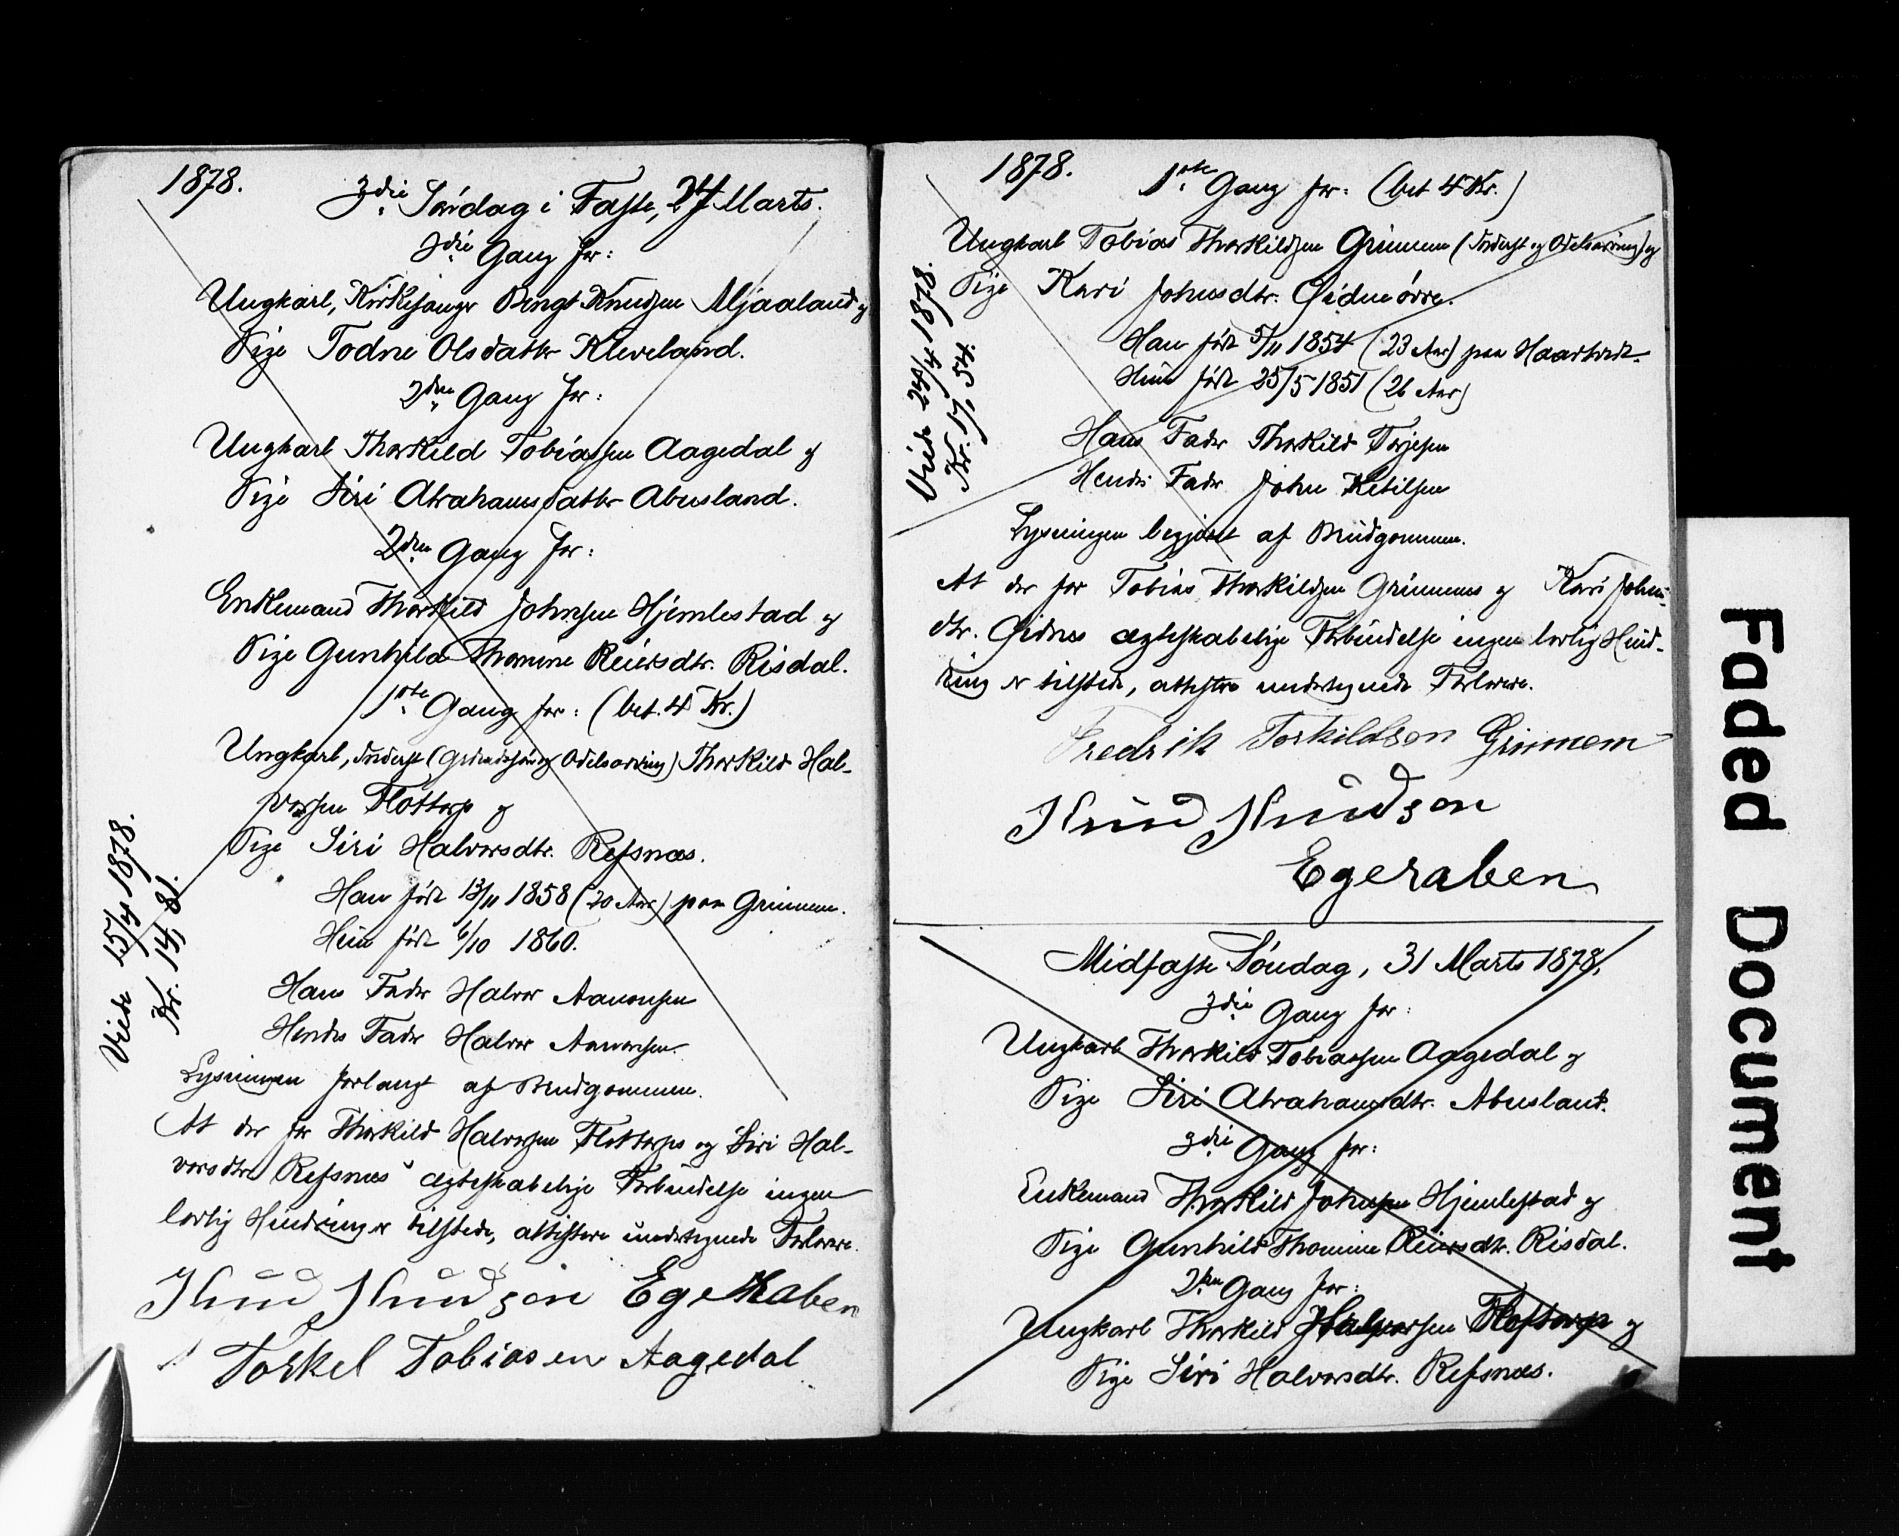 1878.
3die Søndag i Faste, 24 Marts.
3die Gang for:
Ungkarl, Kirkesanger Bengt Knudsen Mjaaland og
Pige Todne Olsdatter Kleveland.
2den Gang for:
Ungkarl Thorkild Tobiassen Aagedal og
Pige Siri Abrahamsdatter Abusland.
2den Gang for:
Enkemand Thorkild Johnsen Hjemlestad og
Pige Gunhild Thomine Reiersdtr. Risdal.
1ste Gang for: (bet. 4 Kr.)
Ungkarl, Inderst ( Odelsarving) Thorkild Hal-
vorsen Flottorp og
Pige Siri Halvorsdtr. Refsnæs.
Han født 13/11 1858 (20 Aar) paa Grimmem.
Hun født 6/10 1860.
Hans Fader Halvor Aanonsen
Hendes Fader Halvor Aanonsen.
Lysningen forlangt af Brudgommen.
At der for Thorkild Halvorsen Flottorps og Siri Hal-
vorsdtr. Refsnæs' ægteskabelige Forbindelse ingen
lovlig Hindring er tilstede, attestere undertegnede Forlovere.
Knud Knudson Egeraben
Torkel Tobiasen Aagedal
Viede 15/4 1878.
Kr. 14, 81.
1878.
1ste Gang for: (bet 4 Kr.)
Ungkarl Tobias Thorkildsen Grimmem (Inderst og Odelsarving) og
Pige Kari Johnsdtr. Eidmørre.
Han født 5/11 1854 (23 Aar) paa
Hun født 25/5 1851 (26 Aar)
Hans Fader Thorkild Terjesen
Hendes Fader John Ketilsen
Lysningen begjært af Brudgommen.
At der for Tobias Thorkildsen Grimmems og Kari Johns-
dtr. ægteskabelige Forbindelse ingen lovlig Hind-
ring er tilstede, attestere undertegnede Forlovere.
Fredrik Torkildson Grimmem
Knud Knudson
Egeraben
Viede 24/4 1878.
Kr. 17, 54.
Midfaste Søndag, 31 Marts 1878.
3die Gang for:
Ungkarl Thorkild Tobiassen Aagedal og
Pige Siri Abrahamsdtr. Abusland.
3die Gang for:
Enkemand Thorkild Johnsen Hjemlestad og
Pige Gunhild Thomine Reiersdtr. Risdal.
2den Gang for:
Ungkarl Thorkild Halvorsen Flottorp og
Pige Siri Halvorsdtr. Refsnæs.
Faded Document